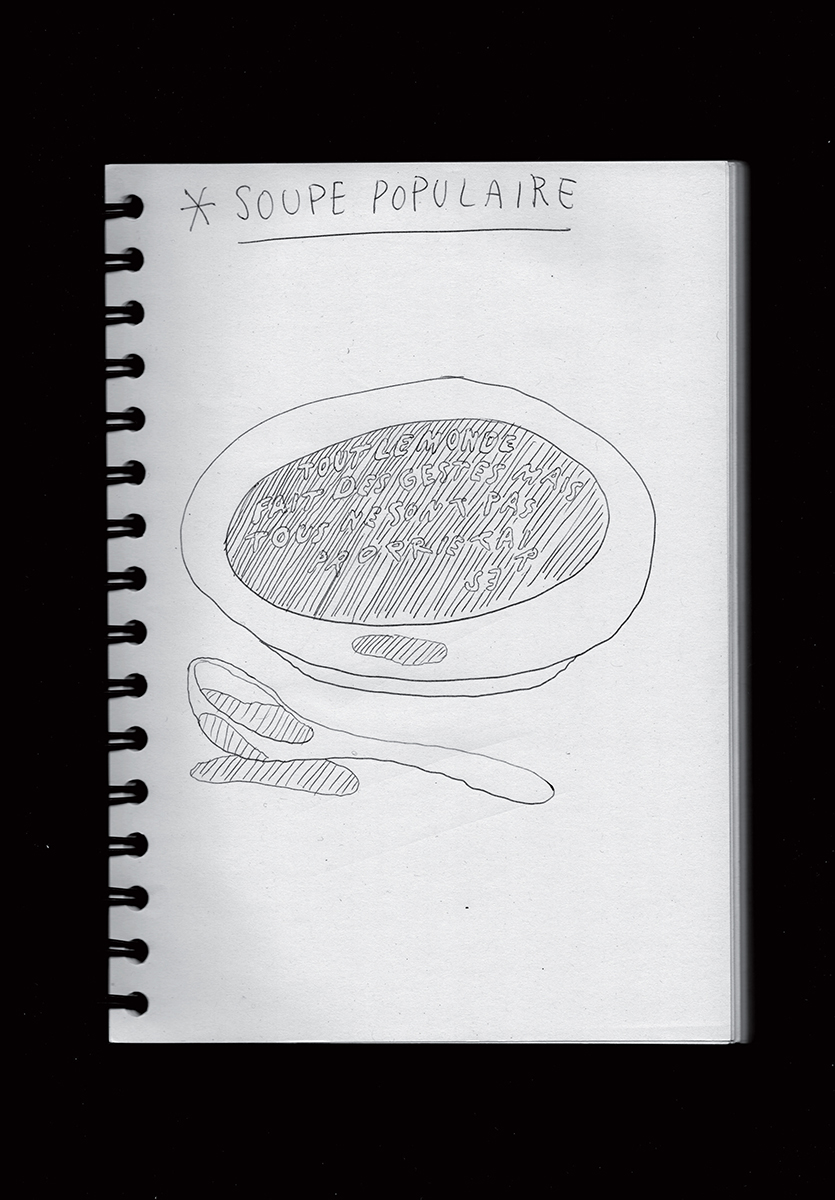 * SOUPE POPULAIRE
TOUT LE MONDE
FAIT DES GESTES MAIS
TOUS NE SONT PAS
PROPRIETAI
R
SE